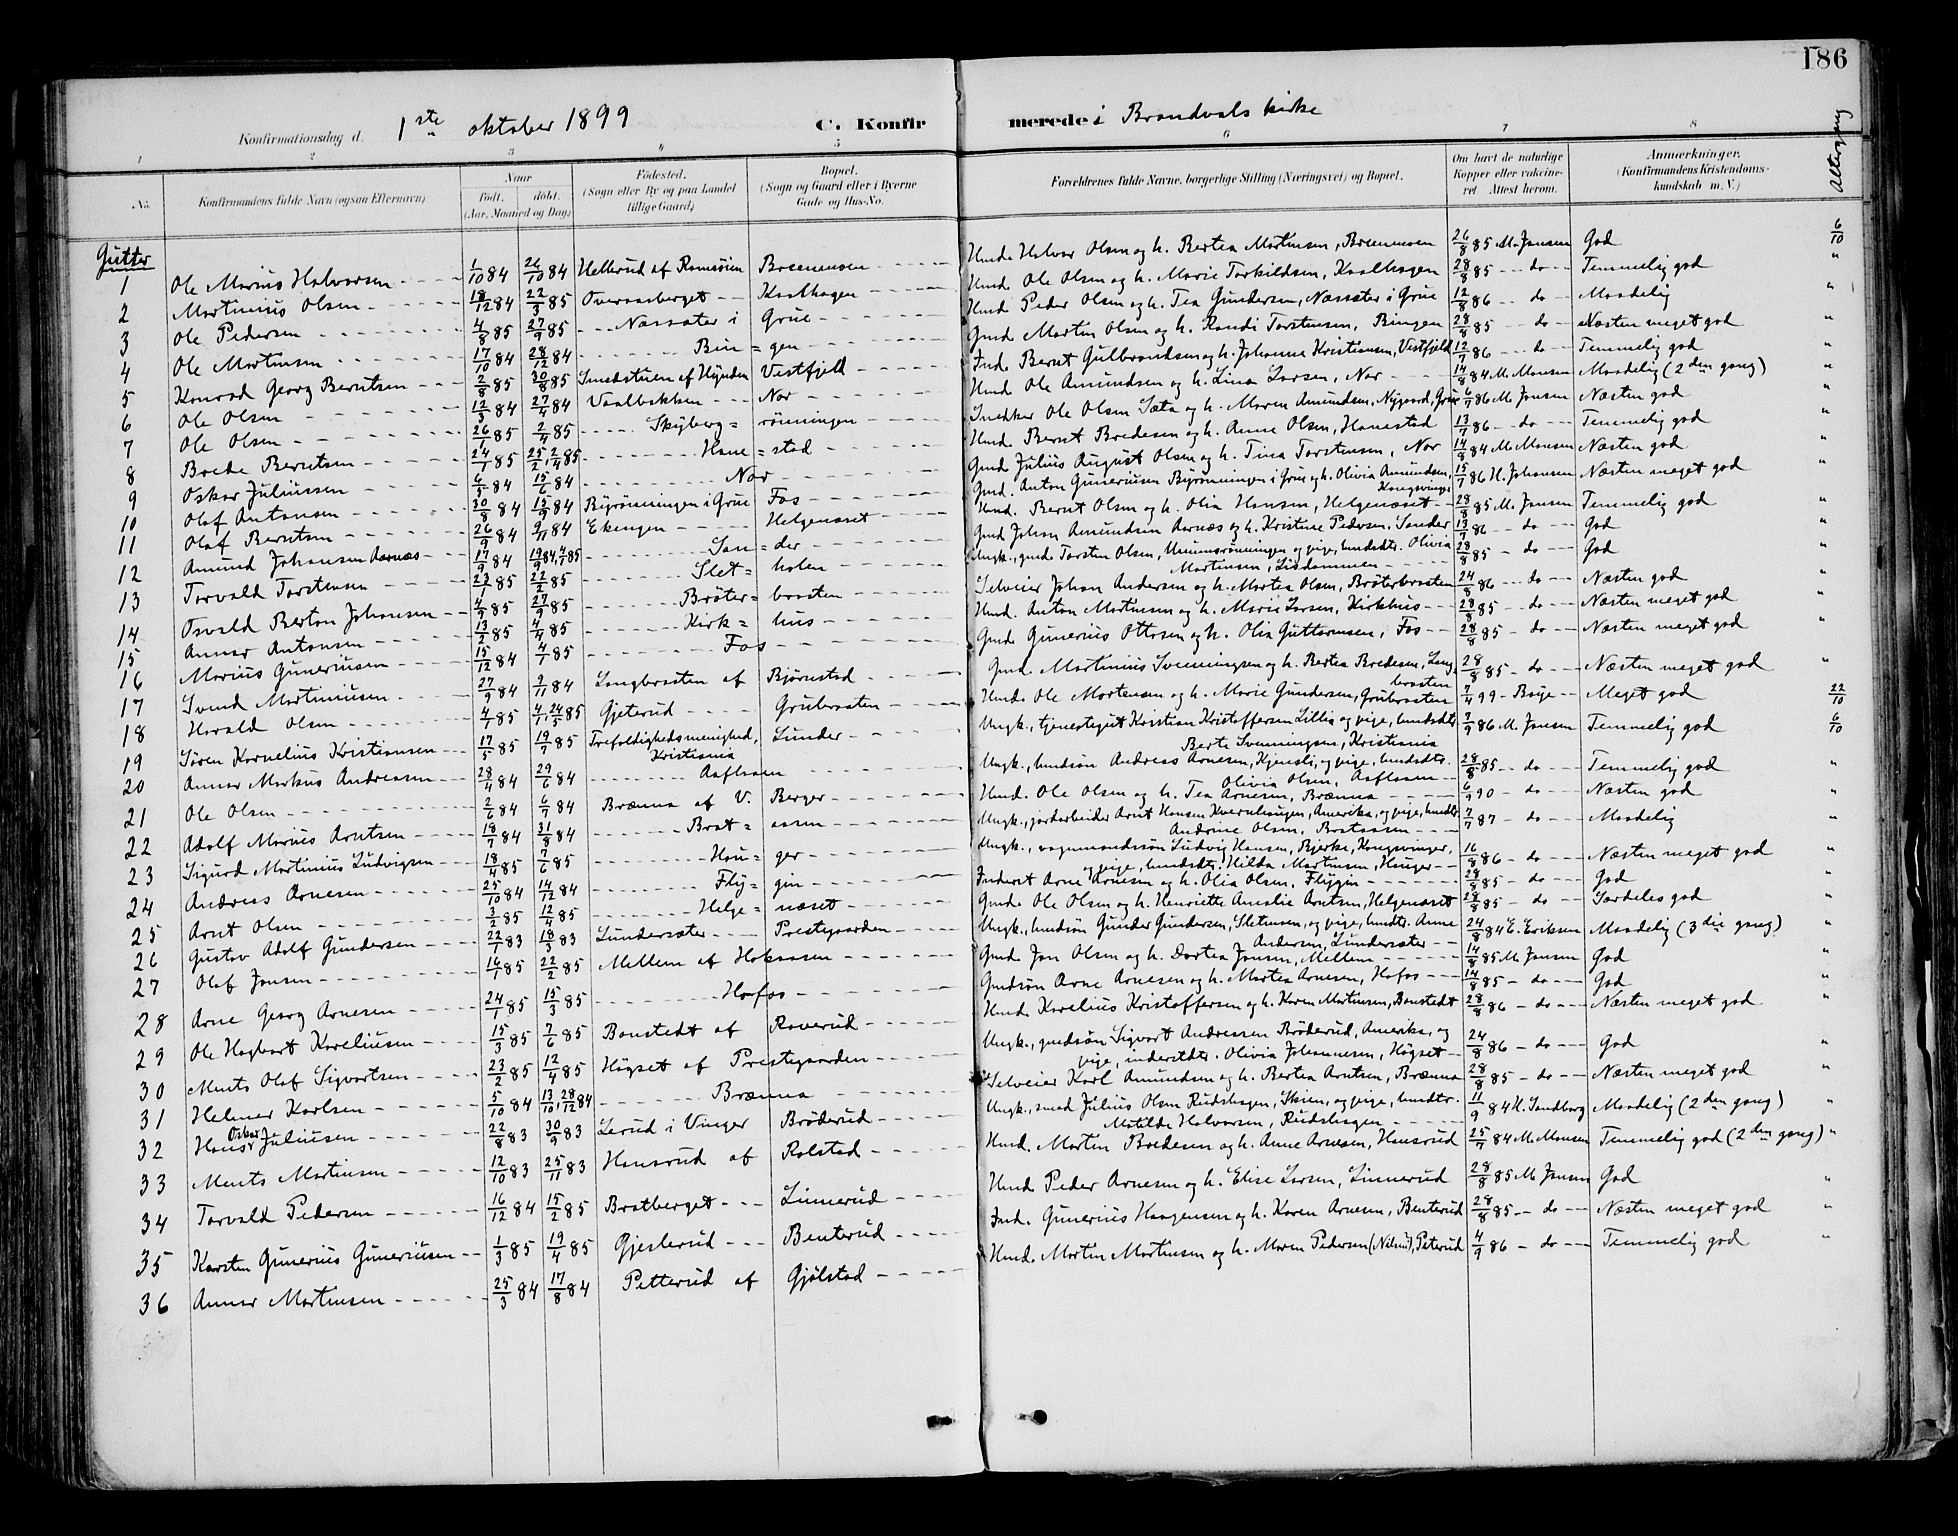 186
Konfirmationsdag d. 1ste oktober 1899 C. Konfirmerede i Brandvals kirke
1 2 3 4 5 6 7 8
No. Konfirmandens fulde Navn (ogsaa Efternavn) Naar født. døbt. (Aar, Maaned og Dag) Fødested. (Sogn eller By og paa Landet tillige Gaard) Bopæl. (Sogn og Gaard eller i Byerne Gade og Hus-No. Forældrenes fulde Navne, borgerlige Stilling (Næringsvei) og Bopæl. Om havt de naturlige Kopper eller vaccineret. Attest herom. Anmærkninger. (Konfirmandens Kristendomskundskab m. V.) Altergang
Gutter
1 Ole Marius Halvorsen 1/10 84 26/10 84 Hellerud af Romsöien Brænmoen Hmd. Halvor Olsen og h. Bertea Martinsen, Brænmoen 26/8 85 M. Jensen God 6/10
2 Martinius Olsen 18/12 84 22/3 85 Overaasberget Kaalhagen Hmd. Ole Olsen og h. Marie Torkildsen, Kaalhagen 28/8 85 do Temmelig god "
3 Ole Pedersen 4/8 85 27/9 85 Næssæter i Grue Hmd. Peder Olsen og h. Tea Gundersen, Næssæter i Grue 12/8 86 do Maadelig "
4 Ole Martinsen 17/10 84 28/12 84 Bingen Gmd. Martin Olsen og h. Randi Torstensen, Bingen 28/8 85 do Næsten meget god "
5 Konrad Georg Berntsen 2/8 85 30/8 85 Smedstuen af Hynden Vestfjeld Ind. Bernt Gulbrandsen og h. Johanne Kristiansen, Vestfjeld 12/7 86 do Temmelig god "
6 Ole Olsen 12/3 84 27/4 84 Vaalbakken Nor Hmd. Ole Amundsen og h. Lina Larsen, Nor 14/8 84 M. Monsen Maadelig (2den gang) "
7 Ole Olsen 26/1 85 2/4 85 Skybergrönningen Snedker Ole Olsen Sæta og h. Maren Amundsen, Nygaard, Grue 6/7 86 M. Jensen Næsten god "
8 Brede Berntsen 24/1 85 25/2, 2/4 85 Hanestad Hmd. Bernt Bredesen og h. Anne Olsen, Hanestad 13/7 86 do Temmelig god "
9 Oskar Juliussen 6/5 84 15/6 84 Nor Gmd. Julius August Olsen og h. Tina Torstensen, Nor 14/8 84 M. Monsen Næsten god "
10 Olaf Antonsen 30/8 84 12/9 84 Byrönningen i Grue Fos Gmd. Anton Guneriusen Byrönningen i Grue og h. Olivia Amundsen, Kongsvinger 15/7 86 H. Johansen Næsten meget god "
11 Olaf Berntsen 26/9 84 9/11 84 Ekengen Helgenæset Hmd. Bernt Olsen og h. Olia Hansen, Helgenæset 28/8 85 M. Jensen Temmelig god "
12 Amund Johansen Aarnæs 17/9 84 Sander Gmd Johan Amundsen Aarnæs og h. Kristine Pedersen, Sander 13/7 86 do God "
13 Torvald Torstensen 23/1 85 22/2 85 Sletholen Ungk., gmd. Torsten Olsen, og pige, hmdsdtr. Olivia Martinsen, 28/8 85 do God "
14 Osvald Berton Johansen 4/9 85 27/9 85 Bröterbraaten Selveier Johan Andersen og h. Martea Olsen, Bröterbraaten 24/8 86 do Næsten god "
15 Annar Antonsen 13/2 85 4/4 85 Kirkhus Hmd. Anton Martinsen og h. Marie Larsen, Kirkhus 28/8 85 do Næsten meget god "
16 Marius Gunerius­en 15/12 84 4/1 85 Fos Gmd. Gunerius Ottosen og h. Olia Guttormsen, Fos 28/8 85 do Næsten meget god "
17 Svend Martiniusen 27/9 84 9/11 84 Langbraaten af Björnstad Gmd. Martinius Svenningsen og h. Bertea Bredesen, Langbraaten 28/8 85 do Næsten meget god "
18 Harald Olsen 4/1 85 4/1, 24/5 85 Gjeterud Grubraaten Hmd. Ole Mortensen og h. Marie Gundersen, Grubraaten 7/4 99 Boye Meget god 22/10
19 Sören Kornelius Kristiansen 17/5 85 19/7 85 Trefoldighedsmenighed, Kristiania Lunder Ungk., tjenestegut Kristian Kristoffersen Lillia og pige, hmdsdtr. Berte Svenningsen, Kristiania 7/9 86 M. Jensen Temmelig god 6/10
20 Annar Markus Andreassen 28/4 84 29/6 84 Aaflaaen Ungk., hmdsön Andreas Arnesen, Kjensli, og pige, hmdsdtr. Olivia Olsen, Aaflaaen 28/8 85 do Temmelig god "
21 Ole Olsen 2/6 84 6/7 84 Brænna af V. Berger Hmd. Ole Olsen og h. Tea Arnesen, Brænna 6/9 90 do Næsten god "
22 Adolf Marius Arntsen 18/7 84 31/8 84 Brataasen Ungk., jordarbeider Arnt Hansen Kvernhaugen, Amerika, og pige, hmdsdtr. Andrine Olsen, Brataasen 7/7 87 do Maadelig "
23 Sigurd Martinius Ludvigsen 18/4 85 7/6 85 Hauger Ungk., vognmandssön Ludvig Hansen, Bjerke, Kongsvinger, og pige, hmdsdtr. Hilda Martinsen, Hauger 16/8 86 do Næsten meget god "
24 Andreas Arnesen 25/10 84 14/12 84 Flygin Inderst Arne Arnesen og h. Olia Olsen, Flygin 28/8 85 do God "
25 Arnt Olsen 3/2 85 12/4 85 Helgenæset Gmd. Ole Olsen og h. Henriette Amalie Arntsen, Helgenæset 28/8 85 do Særdeles god "
26 Gustav Adolf Gundersen 22/1 83 18/3 83 Lundersæter Prestegaarden Ungk., hmdsön Gunder Gundersen, Sletmoen, og pige, hmdsdtr. Anne Andersen, Lundersæter 24/8 84 E. Eriksen Maadelig (3die gang) "
27 Olaf Jensen 16/1 85 22/2 85 Mellem af Hokaasen Gmd. Jan Olsen og h. Dortea Jensen, Mellem 14/8 85 M. Jensen God "
28 Arne Georg Arnesen 24/1 85 15/3 85 Hofos Gmdsön Arne Arnesen og h. Martea Arnesen, Hofos 14/8 85 do God "
29 Ole Hagbart Kareliusen 15/3 85 7/6 85 Bonstedt af Roverud Hmd. Karelius Kristoffersen og h. Karen Martinsen, Bonstedt 28/8 86 do Næsten meget god "
30 Ments Olaf Sigvartsen 23/2 85 12/4 85 Högset af Prestegaarden Ungk., gmdsön Sigvart Andreassen Bröderud, Amerika, og pige, inderstdtr. Olivia Johannesen, Högset 24/8 86 do God "
31 Helmer Karlsen 5/10 84 13/10, 28/12 84 Brænna Selveier Karl Amundsen og h. Bertea Arntsen, Brænna 28/8 85 do Næsten meget god "
32 Hans Oskar Juliusen 22/8 83 30/9 83 Lerud i Vinger Bröderud Ungk., smed Julius Olsen Rudshagen, Skien, og pige, hmdsdtr. Matilde Halvorsen, Rudshagen 11/9 84 H. Sandberg Maadelig (2den gang) "
33 Ments Martinsen 12/10 83 25/11 83 Hansrud af Rolstad Hmd. Martin Bredesen og h. Anne Arnesen, Hansrud 25/7 84 M. Monsen Temmelig god (2den gang) "
34 Torvald Pedersen 16/12 84 15/2 85 Bratberget Linnerud Hmd. Peder Arnesen og h. Elise Larsen, Linnerud 28/8 85 M. Jensen God "
35 Karsten Gunerius Guneriusen 1/3 85 19/4 85 Gjesterud Benterud Ind. Gunerius Haagensen og h. Karen Arnesen, Benterud 28/8 85 do Næsten meget god "
36 Annar Martinsen 25/3 84 17/8 84 Petterud af Gjölstad Hmd. Martin Martinsen og h. Maren Pedersen (Nilsen), Peterud 4/9 86 do Temmelig god "